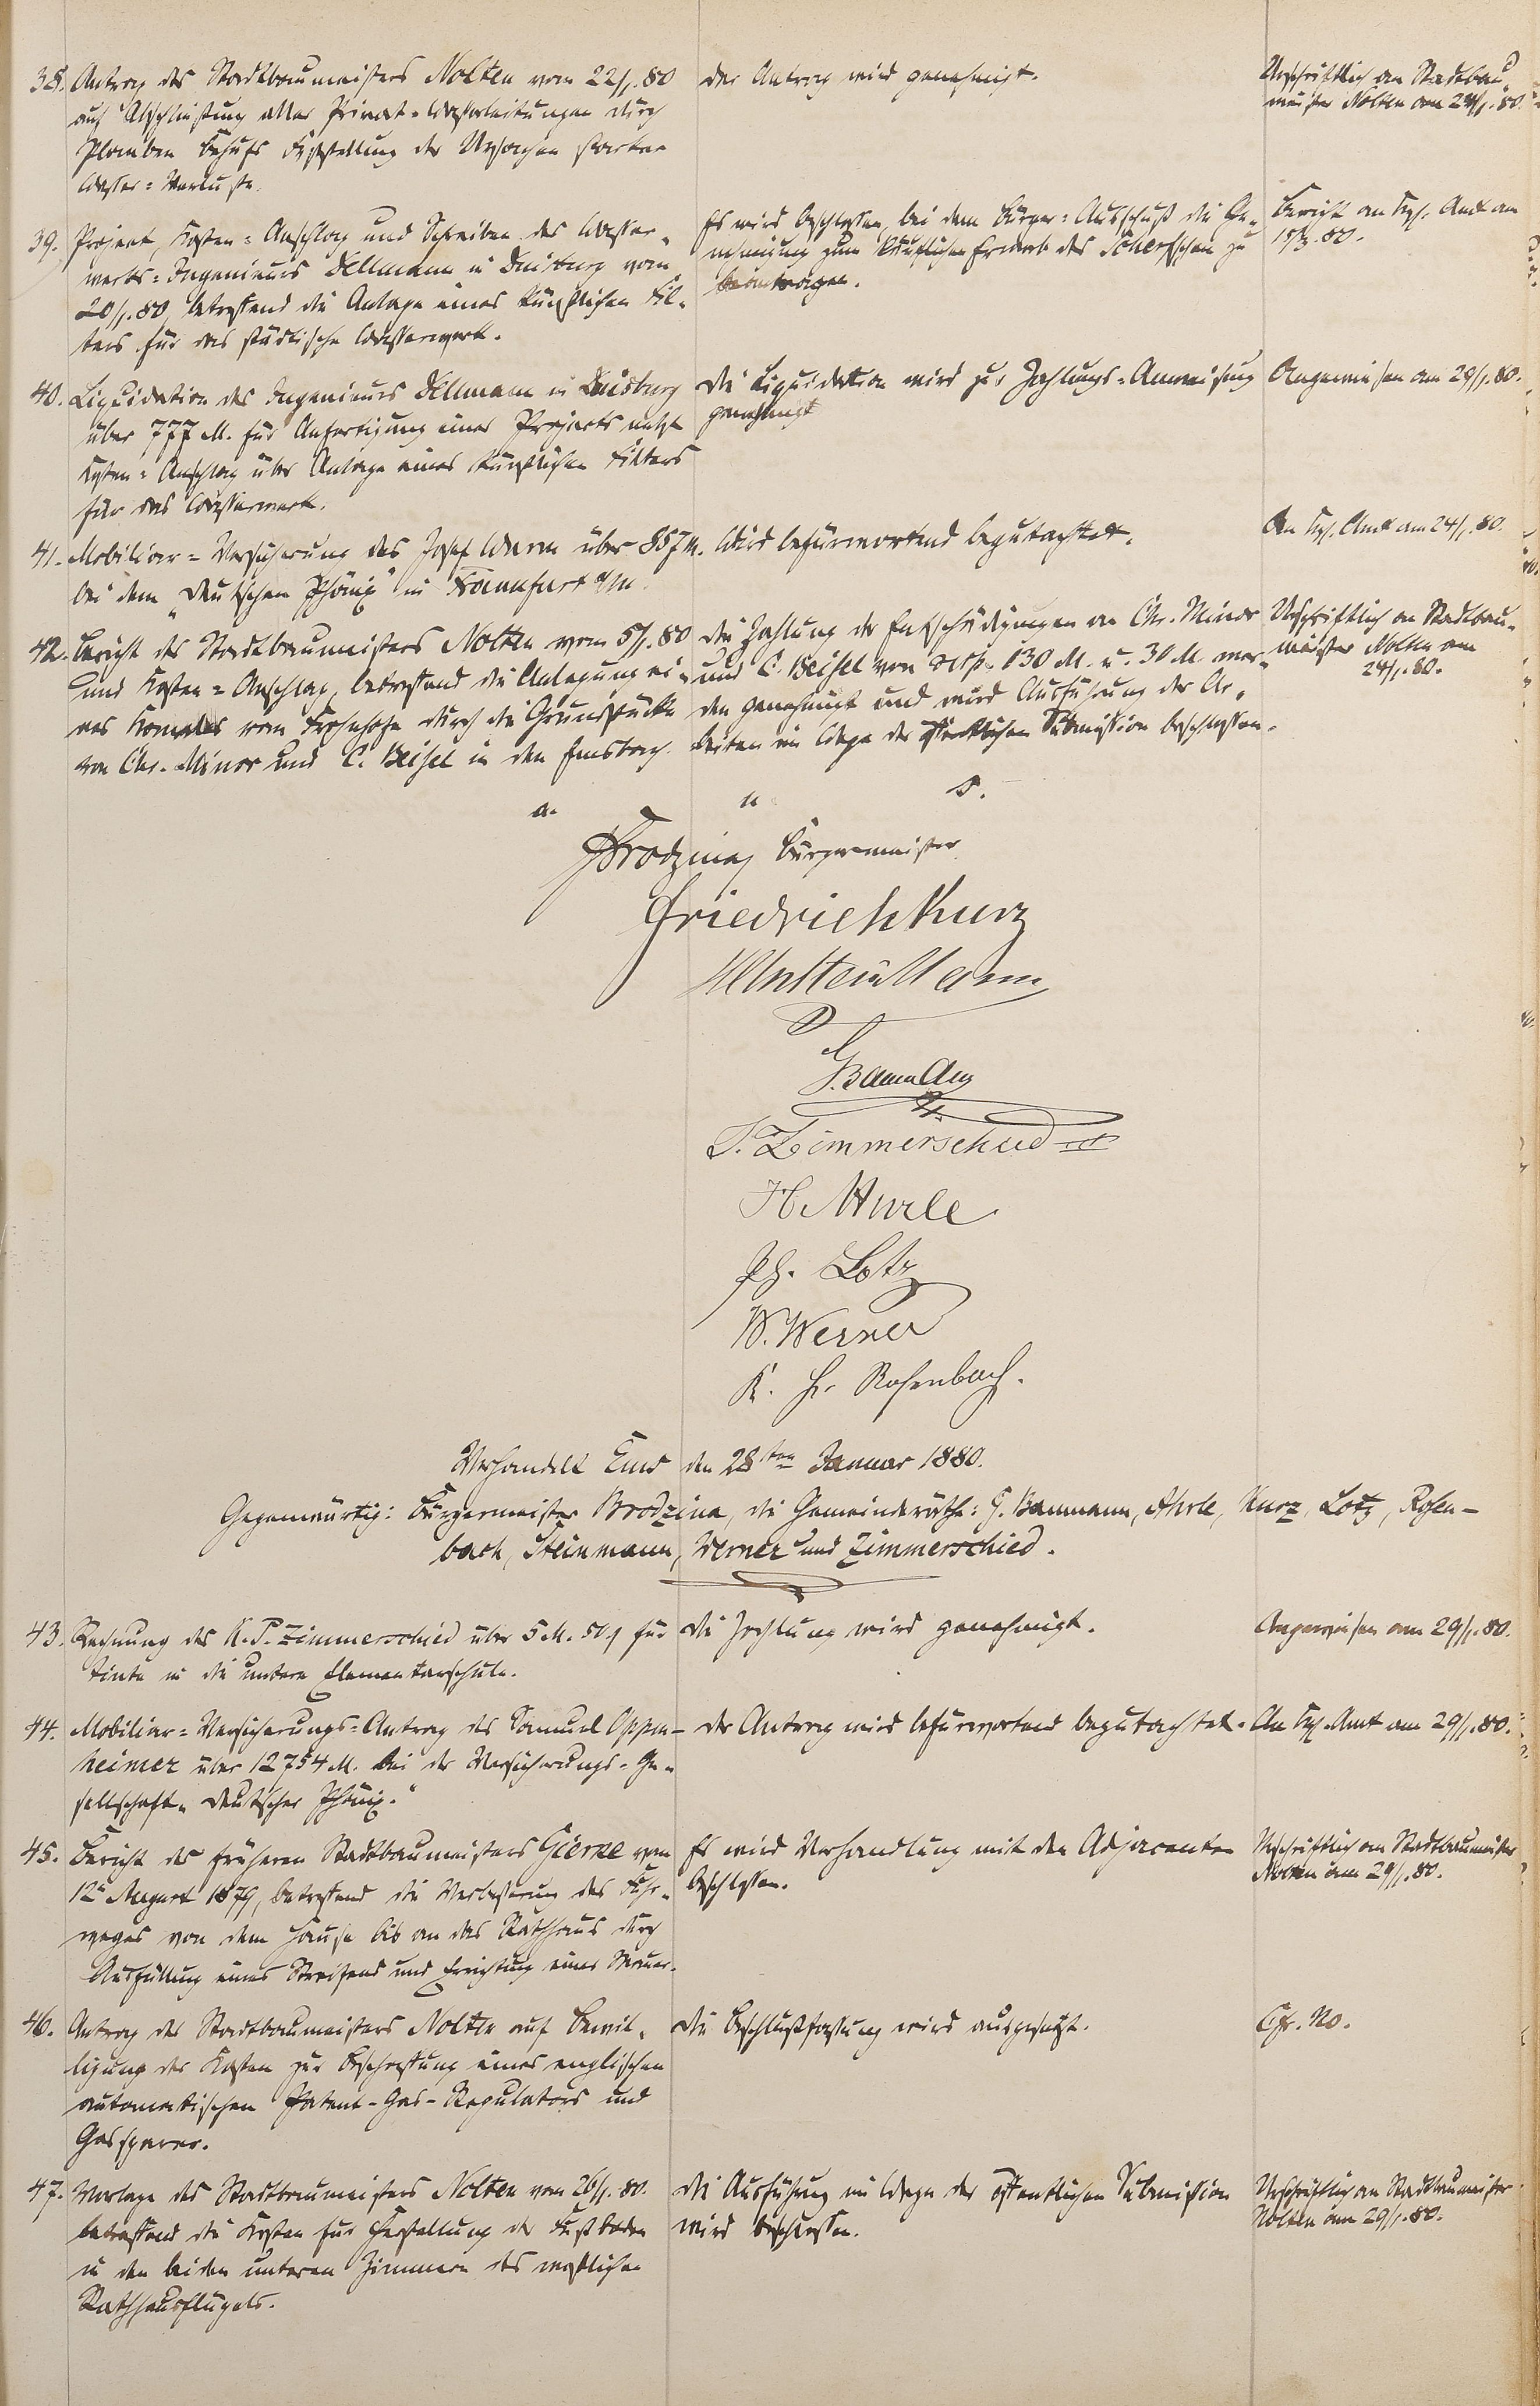 38. Antrag des Stadtbaumeisters Nolten vom 22/1. 80
auf Abschließung aller Privat-Wasserleitungen durch
Plomben behufs Feststellung der Ursachen starker
Wasser-Verluste.
Der Antrag wird genehmigt.
Urschriftlich an Stadtbau-
meister Nolten am 24/1. 80.
39. Project, Kosten-Anschlag und Schreiben des Wasser-
werks-Ingenieurs Dellmann in Duisburg vom
20/1. 80, betreffend die Anlage eines künstlichen Fil-
ters für das städtische Wasserwerk.
Es wird beschlossen, bei dem Bürger-Ausschuß die Ge-
nehmigung zum käuflichen Erwerb des zu
beantragen.
Bericht an Kgl. Amt am
15/3. 80.
40. Liquidation des Ingenieurs Dellmann in Duisburg
über 777 M. für Anfertigung eines Projects nebst
Kosten-Anschlag über Anlage eines künstlichen Filters
für das Wasserwerk.
Die Liquidation wird zur Zahlungs-Anweisung
genehmigt
Angewiesen am 29/1. 80.
41. Mobiliar-Versicherung des Josef Wurm über 857 M.
bei dem „Deutschen Phönix" in Frankfurt a/M.
Wird befürwortend begutachtet.
An Kgl. Amt am 24/1. 80.
42. Bericht des Stadtbaumeisters Nolten vom 5/1. 80
und Kosten-Anschlag, betreffend die Anlegung ei-
nes Kanales vom durch die Grundstücke
von Chr. Minor und C. Beisel in den Emsbach.
Die Zahlung der Entschädigungen an Chr. Minor
und C. Beisel von resp. 130 M. u. 30 M. wer-
den genehmigt und wird Ausführung der Ar-
beiten im Wege der öffentlichen Submission beschlossen.
Urschriftlich an Stadtbau-
meister Nolten am
24/1. 80.
a. u. s.
Brodzina Bürgermeister
Friedrich Kurz
Steinmann
G. Baumann
P. Zimmerschied
H. Ahrle
Ph. Lotz
W. Werner
K. Hr. Rosenbach.
Verhandelt Ems den 28ten Januar 1880.
Gegenwärtig: Bürgermeister Brodzina, die Gemeinderäthe: G. Baumann, Ahrle, Kurz, Lotz, Rosen-
bach, Steinmann, Werner und Zimmerschied.
43. Rechnung des K. P. Zimmerschied über 5 M. 50 für
Tinte in die untere Elementarschule.
Die Zahlung wird genehmigt.
Angewiesen am 29/1. 80.
44. Mobiliar-Versicherungs-Antrag des Samuel Oppen-
heimer über 12754 M. bei der Versicherungs-Ge-
sellschaft „Deutscher Phönix."
Der Antrag wird befürwortend begutachtet.
An Kgl. Amt am 29/1. 80.
45. Bericht des früheren Stadtbaumeisters Gierke vom
12n August 1879, betreffend die Verbesserung des Fuhr-
weges von dem Hause bis an das Rathhaus durch
Ausfüllung eines Streifens und Errichtung einer Mauer.
Es wird Verhandlung mit den Adjacenten
beschlossen.
Urschriftlich an Stadtbaumeister
Nolten am 29/1. 80.
46. Antrag des Stadtbaumeisters Nolten auf Bewil-
ligung der Kosten zur Beschaffung eines englischen
automatischen Patent-Gas-Regulators und
Gassparer.
Die Beschlußfassung wird ausgesetzt.
Cfr. No.
47. Vorlage des Stadtbaumeisters Nolten vom 26/1. 80.
betreffend die Kosten für Herstellung der Fußböden
in den beiden unteren Zimmern des westlichen
Rathhausflügels.
Die Ausführung im Wege der öffentlichen Submission
wird beschlossen.
Urschriftlich an Stadtbaumeister
Nolten am 29/1. 80.